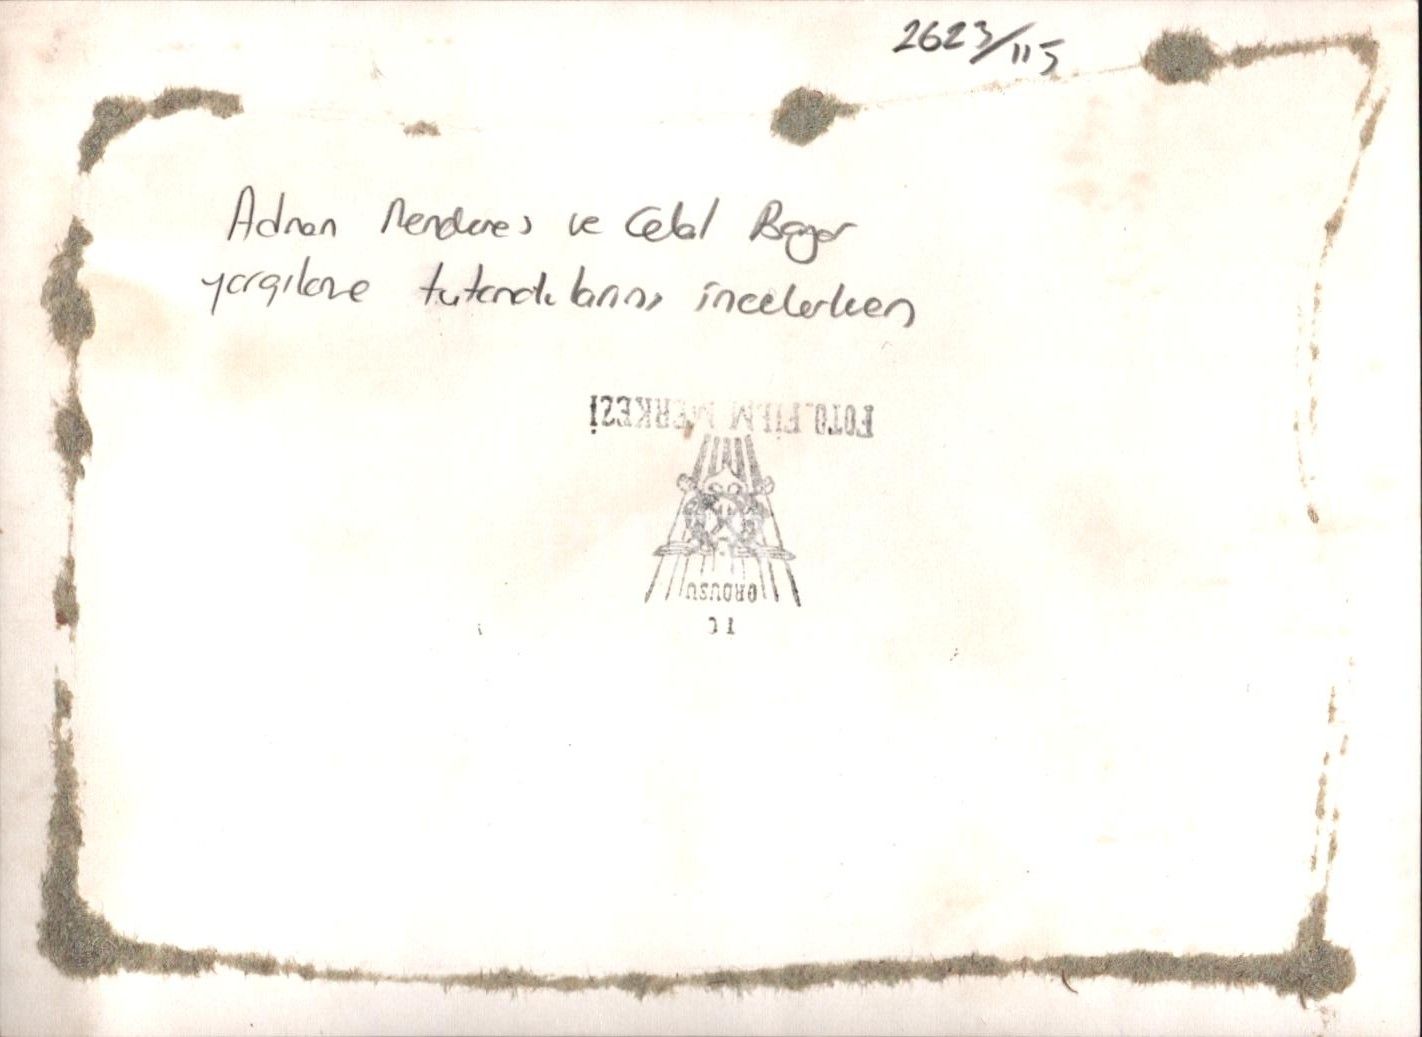 2623/115
Adnan Menderes ve Celal Bayar
yargılama tutanaklarını incelerken
FOTO FİLM MERKEZİ
ORDUSU
TC